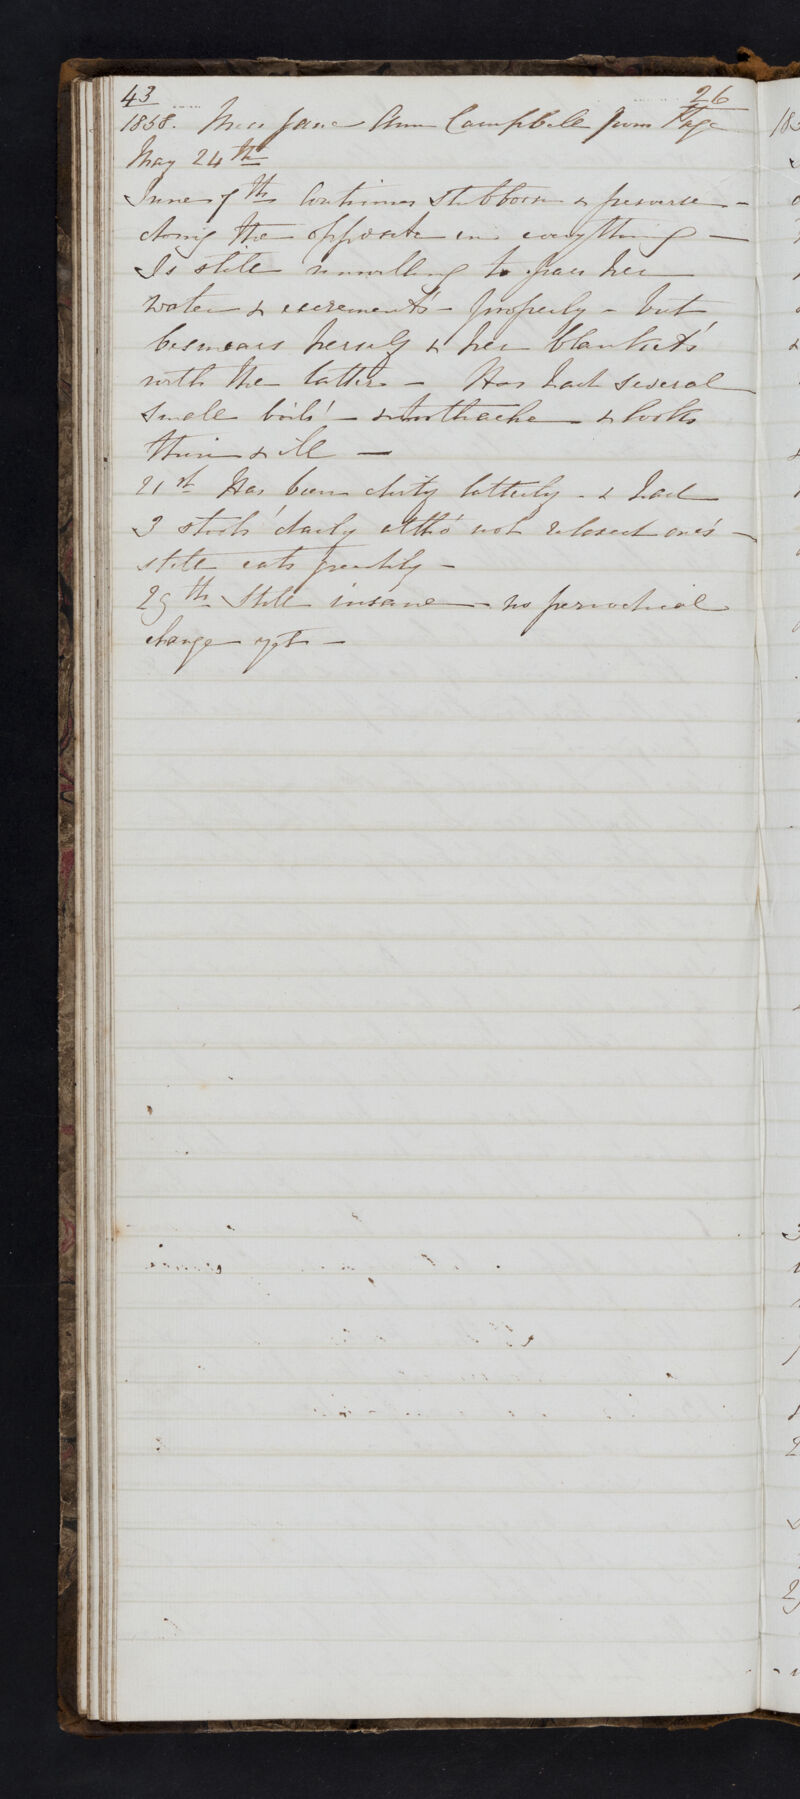 43 26
1858. Miss Jane Ann Campbell from Page
May 24th
June 7th Continues stubborn & perverse -
doing the opposite in everything —
Is still unwilling to pass her
water & excrements - properly - but
besmears herself & her blankets
with the latter - Has had several
small boils - & toothache - & looks
thin & ill —
21st Has been dirty latterly - & had
3 stools daily altho' not relaxed ones -
still eats greedily -
29th Still insane - no periodical
change yet -